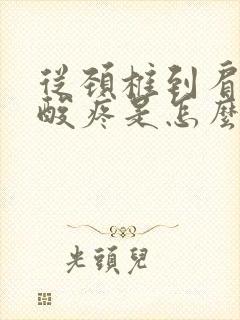 從頚椎到肩
酸疼是怎麼
光頭兒